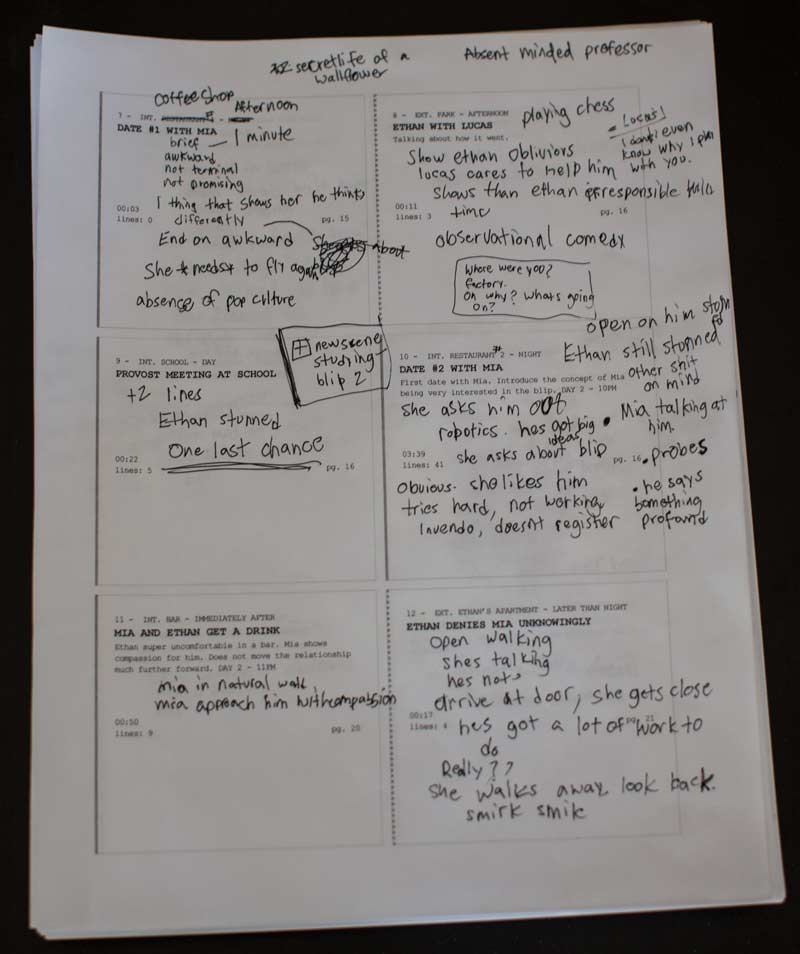 secretlife of a
wallflower
Absent minded professor
Coffee Shop
Afternoon
7 - INT. RESTAURANT -
DATE #1 WITH MIA
brief — 1 minute
awkward
not terminal
not promising
1 thing that shows her he thinks
differently
00:03
lines: 0
pg. 15
End on awkward
about
She *needs* to fly again
absence of pop culture
8 - EXT. PARK - AFTERNOON
playing chess
ETHAN WITH LUCAS
Talking about how it went.
Lucas
I don't even
know why I play
with you.
Show ethan oblivios
lucas cares to help him
shows than ethan irresponsible
time
00:11
lines: 3
pg. 16
observational comedy
Where were you?
factory.
Oh why? Whats going
on?
9 - INT. SCHOOL - DAY
PROVOST MEETING AT SCHOOL
+2 lines
Ethan stunned
One last chance
00:22
lines: 5
pg. 16
+ newscene
studying
blip 2
open on him
10 - INT. RESTAURANT #2 - NIGHT
DATE #2 WITH MIA
First date with Mia. Introduce the concept of Mia
being very interested in the blip. DAY 2 - 10PM
Ethan still stonned
other shit
on mind
she asks him out
robotics. hes got big
ideas
• Mia talking at
him.
she asks about blip
03:39
lines: 41
pg. 16
• probes
Obvious. she likes him
tries hard, not working
Inuendo, doesnt register
• he says
something
profound
11 - INT. BAR - IMMEDIATELY AFTER
MIA AND ETHAN GET A DRINK
Ethan super uncomfortable in a bar. Mia shows
compassion for him. Does not move the relationship
much further forward. DAY 2 - 11PM
mia in natural
mia approach him with compassion
00:50
lines: 9
pg. 20
12 - EXT. ETHAN'S APARTMENT - LATER THAN NIGHT
ETHAN DENIES MIA UNKNOWINGLY
Open walking
shes talking
hes not
arrive at door, she gets close
00:17
lines: 4
pg. 21
hes got a lot of work to
do
Really??
She walks away look back.
smirk smik